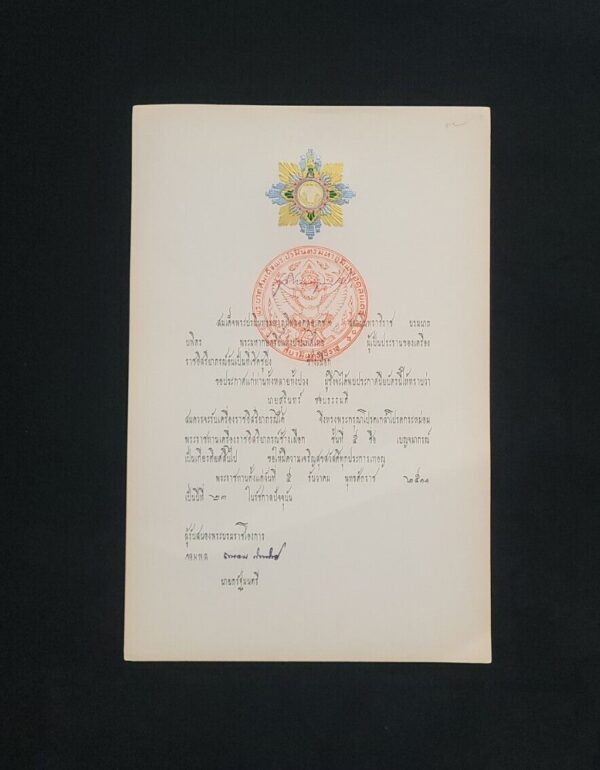 สมเด็จพระปรมินทรมหาภูมิพลอดุลยเดช บรมนาถ
บพิตร พระมหากษัตริย์แห่งประเทศไทย ผู้เป็นประธานของเครื่อง
ราชอิสริยาภรณ์อันเป็นที่เชิดชูยิ่ง ช้างเผือก
ขอประกาศแก่ท่านทั้งหลายทั้งปวง ผู้ซึ่งได้พบประกาศนียบัตรนี้ให้ทราบว่า
นายสุรินทร์ ชอบธรรมดี
สมควรจะรับเครื่องราชอิสริยาภรณ์ได้ จึงทรงพระกรุณาโปรดเกล้าโปรดกระหม่อม
พระราชทานเครื่องราชอิสริยาภรณ์ช้างเผือก ชั้นที่ ๕ ชื่อ เบญจมาภรณ์
เป็นเกียรติยศสืบไป ขอให้มีความเจริญสุขสวัสดิ์ทุกประการเทอญ
พระราชทานตั้งแต่วันที่ ๕ ธันวาคม พุทธศักราช ๒๕๑๑
เป็นปีที่ ๒๓ ในรัชกาลปัจจุบัน
ผู้รับสนองพระบรมราชโองการ
จอมพล
นายกรัฐมนตรี